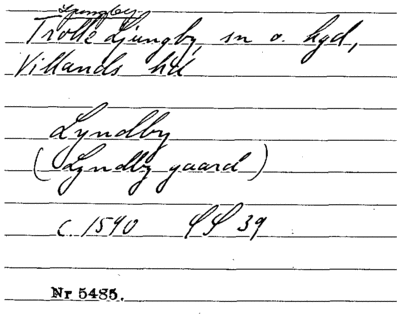 Ljungby
Trolle Ljungby, sn o. hgd,
Villands hd
Lyndby
(Lyndby gaard)
c. 1590 SS 39
Nr 5485.